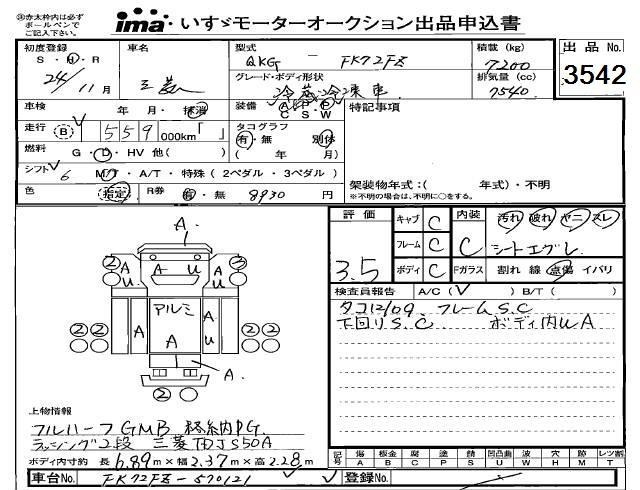 ㊟赤太枠内は必ず
ボールペンで
ご記入下さい。
ima いすゞモーターオークション出品申込書
初度登録
S・H・R
24/11月
車名
三菱
型式
QKG － FK72FZ
グレード・ボディ形状
冷蔵冷凍車
積載 (kg)
7200
排気量 (cc)
7540
出品 No.
3542
車検 年・月・抹消
装備 A P P
C S W
特記事項
走行 (B) 559 000km「 」
タコグラフ
有・無 別体
( 年 月)
燃料 G・D・HV 他( )
シフト 6 M/T・A/T・特殊 (2ペダル・3ペダル)
架装物年式：( 年式)・不明
※不明の場合は、不明に○をする。
色 指定 R券 有・無 8930 円
評価
3.5
キャブ C
フレーム C
ボディ C
内装 C
汚れ 破れ ヤニ スレ
シートエグレ
Fガラス 割れ 線 点傷 イバリ
検査員報告 A/C( ) B/T( )
タコ12/09、フレームS.C
下回りS.C ボディ内UA
A
② ③
A U A U
② ②
アルミ
A A A U
② ② ② ②
A
② ○
上物情報
フルハーフ GMB 格納PG
ラッシング2段 三菱TDJS50A
ボディ内寸約 長 6.89m×幅 2.37m×高 2.28m
記号 傷 板金 腐 塗 錆 凹凸曲 波 穴 歪 レツ割
A B C P S U W H M T
車台No. FK72FZ-570121 登録No.